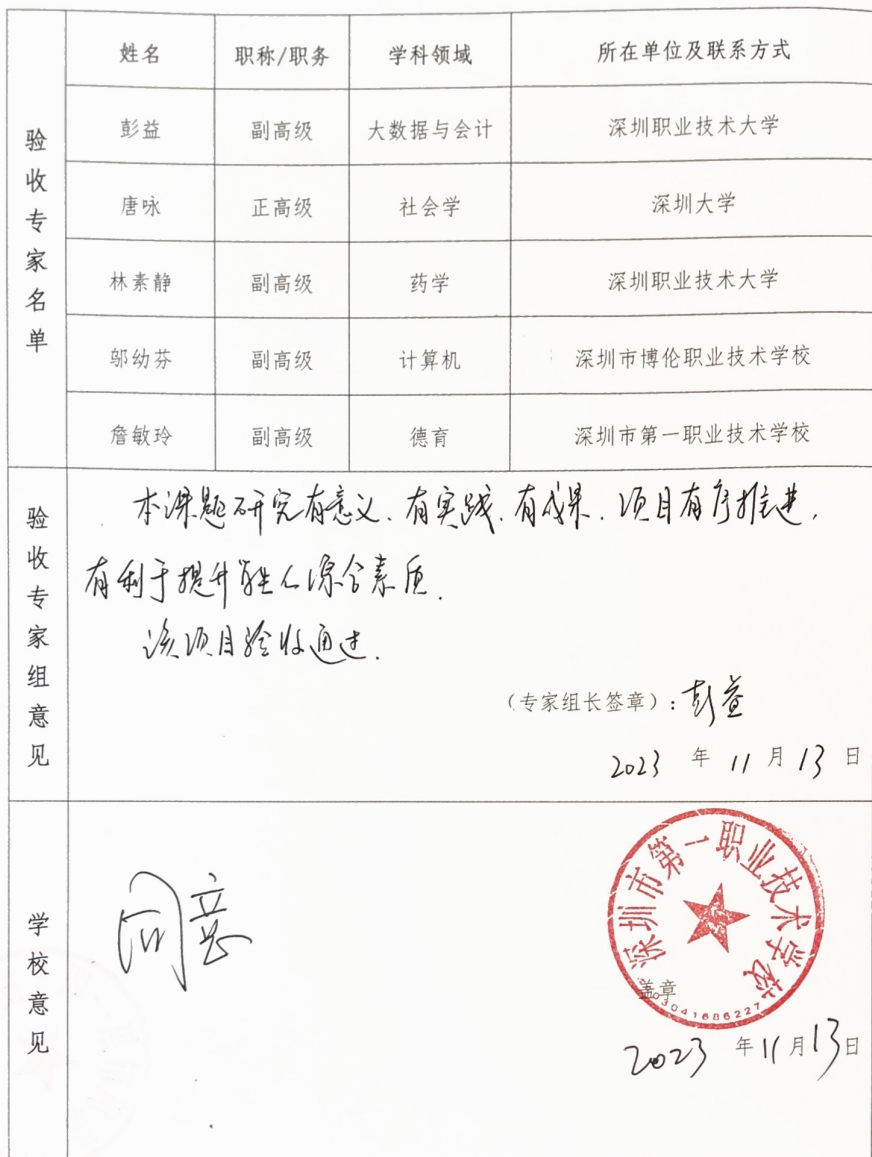 姓名 职称/职务 学科领域 所在单位及联系方式
验收专家名单
彭益 副高级 大数据与会计 深圳职业技术大学
唐咏 正高级 社会学 深圳大学
林素静 副高级 药学 深圳职业技术大学
邬幼芬 副高级 计算机 深圳市博伦职业技术学校
詹敏玲 副高级 德育 深圳市第一职业技术学校
验收专家组意见
本课题研究有意义、有实践、有成果、项目有序推进,
有利于提升 综合素质.
该项目验收通过.
(专家组长签章):彭益
2023 年 11 月 13 日
学校意见
同意
深圳市第一职业技术学校
盖章
03041686227
2023 年 11 月 13 日